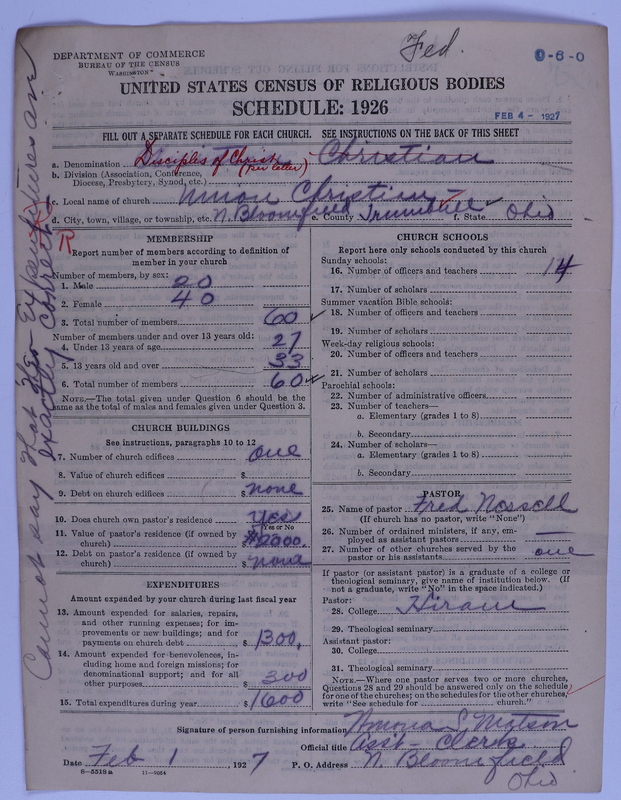 DEPARTMENT OF COMMERCE
BUREAU OF THE CENSUS
WASHINGTON
Fed.
0-6-0
UNITED STATES CENSUS OF RELIGIOUS BODIES
SCHEDULE: 1926
FEB 4 - 1927
FILL OUT A SEPARATE SCHEDULE FOR EACH CHURCH. SEE INSTRUCTIONS ON THE BACK OF THIS SHEET
a. Denomination Disciples of Christ (per letter) Christian
b. Division (Association, Conference,
Diocese, Presbytery, Synod, etc.)
c. Local name of church Union Christian
d. City, town, village, or township, etc. N. Bloomfield e. County Trumbull f. State Ohio
R
MEMBERSHIP
Report number of members according to definition of
member in your church
Number of members, by sex:
1. Male 20
2. Female 40
3. Total number of members 60
Number of members under and over 13 years old:
4. Under 13 years of age 27
5. 13 years old and over 33
6. Total number of members 60
NOTE.—The total given under Question 6 should be the
same as the total of males and females given under Question 3.
CHURCH BUILDINGS
See instructions, paragraphs 10 to 12
7. Number of church edifices one
8. Value of church edifices $
9. Debt on church edifices $ none
10. Does church own pastor's residence yes
Yes or No
11. Value of pastor's residence (if owned by
church) $2000
12. Debt on pastor's residence (if owned by
church) $ none
EXPENDITURES
Amount expended by your church during last fiscal year
13. Amount expended for salaries, repairs,
and other running expenses; for im-
provements or new buildings; and for
payments on church debt $ 1300,
14. Amount expended for benevolences, in-
cluding home and foreign missions; for
denominational support; and for all
other purposes $ 300
15. Total expenditures during year $ 1600
CHURCH SCHOOLS
Report here only schools conducted by this church
Sunday schools:
16. Number of officers and teachers 14
17. Number of scholars
Summer vacation Bible schools:
18. Number of officers and teachers
19. Number of scholars
Week-day religious schools:
20. Number of officers and teachers
21. Number of scholars
Parochial schools:
22. Number of administrative officers
23. Number of teachers—
a. Elementary (grades 1 to 8)
b. Secondary
24. Number of scholars—
a. Elementary (grades 1 to 8)
b. Secondary
PASTOR
25. Name of pastor Fred
(If church has no pastor, write "None")
26. Number of ordained ministers, if any, em-
ployed as assistant pastors —
27. Number of other churches served by the
pastor or his assistants one
If pastor (or assistant pastor) is a graduate of a college or
theological seminary, give name of institution below. (If
not a graduate, write "No" in the space indicated.)
Pastor:
28. College Hiram
29. Theological seminary
Assistant pastor:
30. College
31. Theological seminary
NOTE.—Where one pastor serves two or more churches,
Questions 28 and 29 should be answered only on the schedule
for one of the churches; on schedules for the other churches
write "See schedule for church."
Signature of person furnishing information S. Matson
Official title Asst - Clerk
Date Feb 1, 1927 P. O. Address N. Bloomfield
Ohio
8-5518a 11-9054
Cannot say that these Expenditures are
exactly correct